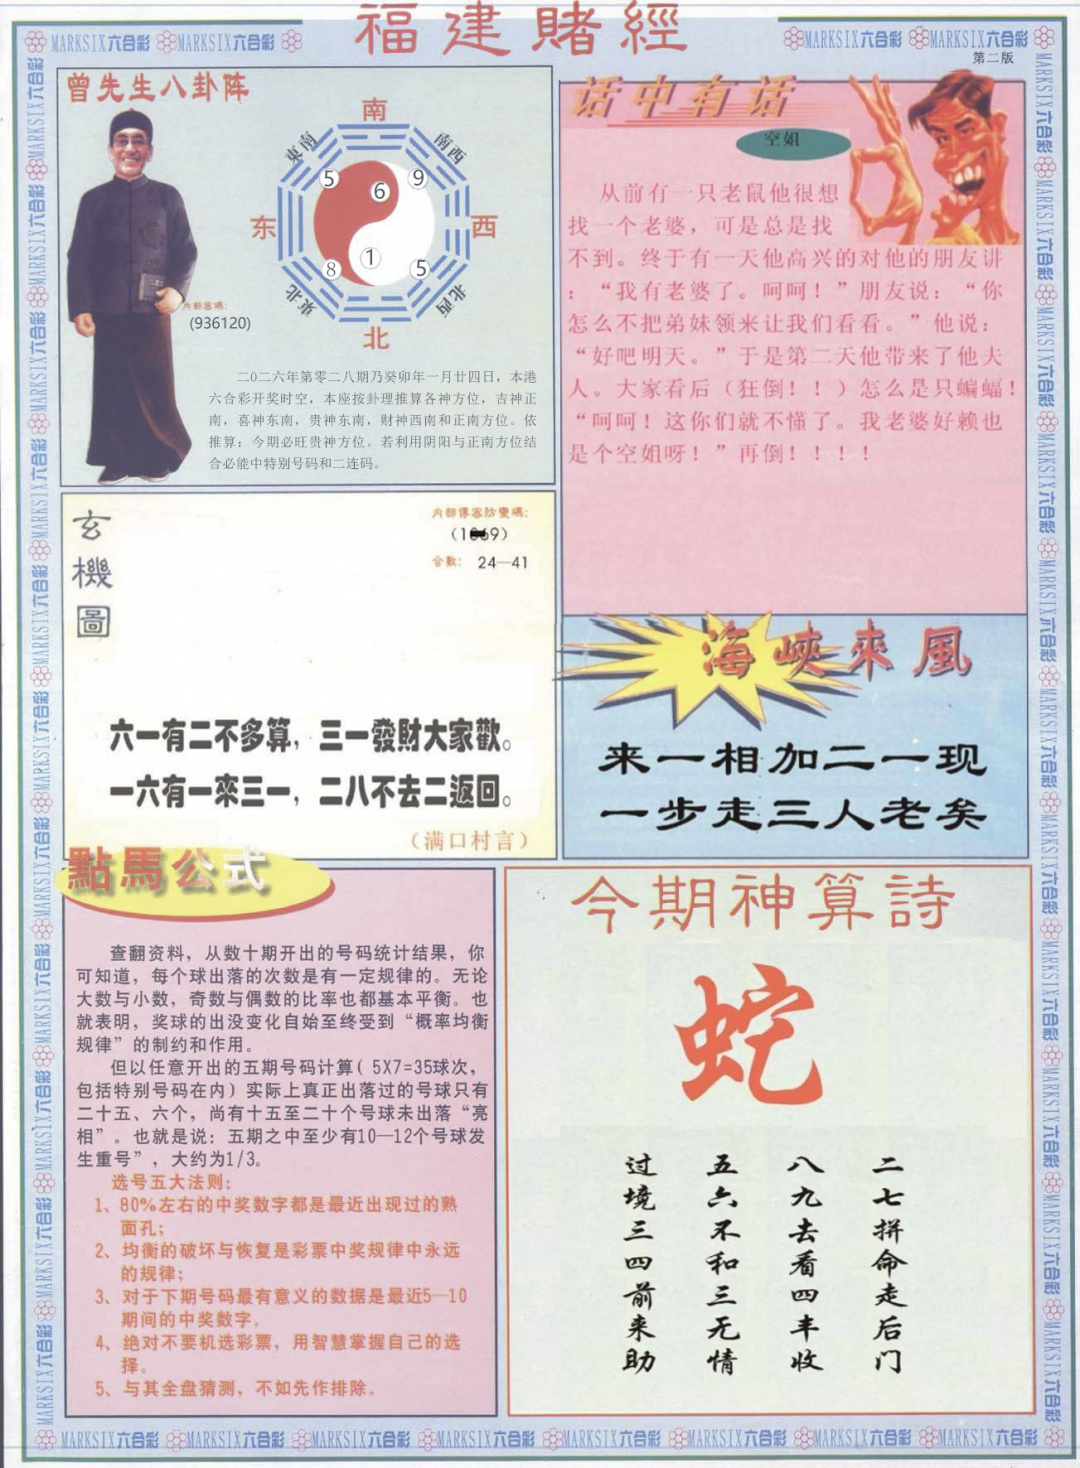 福建賭經
MARKSIX六合彩 MARKSIX六合彩
MARKSIX六合彩 MARKSIX六合彩
第二版
曾先生八卦阵
南
東南
南西
5
6
9
东
西
8
1
5
東北
北西
北
内部密碼:
(936120)
二〇二六年第零二八期乃癸卯年一月廿四日，本港
六合彩开奖时空，本座按卦理推算各神方位，吉神正
南，喜神东南，贵神东南，财神西南和正南方位。依
推算：今期必旺贵神方位。若利用阴阳与正南方位结
合必能中特别号码和二连码。
话中有话
空姐
从前有一只老鼠他很想
找一个老婆，可是总是找
不到。终于有一天他高兴的对他的朋友讲
：“我有老婆了。呵呵！”朋友说：“你
怎么不把弟妹领来让我们看看。”他说：
“好吧明天。”于是第二天他带来了他夫
人。大家看后（狂倒！！）怎么是只蝙蝠！
“呵呵！这你们就不懂了。我老婆好赖也
是个空姐呀！”再倒！！！！
玄機圖
内部傳密防變碼:
合數: 24—41
六一有二不多算，三一發財大家歡。
一六有一來三一，二八不去二返回。
（满口村言）
海峽來風
来一相加二一现
一步走三人老矣
點馬公式
查翻资料，从数十期开出的号码统计结果，你
可知道，每个球出落的次数是有一定规律的。无论
大数与小数，奇数与偶数的比率也都基本平衡。也
就表明，奖球的出没变化自始至终受到“概率均衡
规律”的制约和作用。
但以任意开出的五期号码计算( 5X7=35球次，
包括特别号码在内）实际上真正出落过的号球只有
二十五、六个，尚有十五至二十个号球未出落“亮
相”。也就是说：五期之中至少有10—12个号球发
生重号”，大约为1/3。
选号五大法则：
1、80%左右的中奖数字都是最近出现过的熟
面孔；
2、均衡的破坏与恢复是彩票中奖规律中永远
的规律；
3、对于下期号码最有意义的数据是最近5—10
期间的中奖数字。
4、绝对不要机选彩票，用智慧掌握自己的选
择。
5、与其全盘猜测，不如先作排除。
今期神算詩
蛇
二七拼命走后门
八九去看四丰收
五六不和三无情
过境三四前来助
MARKSIX六合彩 MARKSIX六合彩 MARKSIX六合彩 MARKSIX六合彩 MARKSIX六合彩 MARKSIX六合彩 MARKSIX六合彩 MARKSIX六合彩